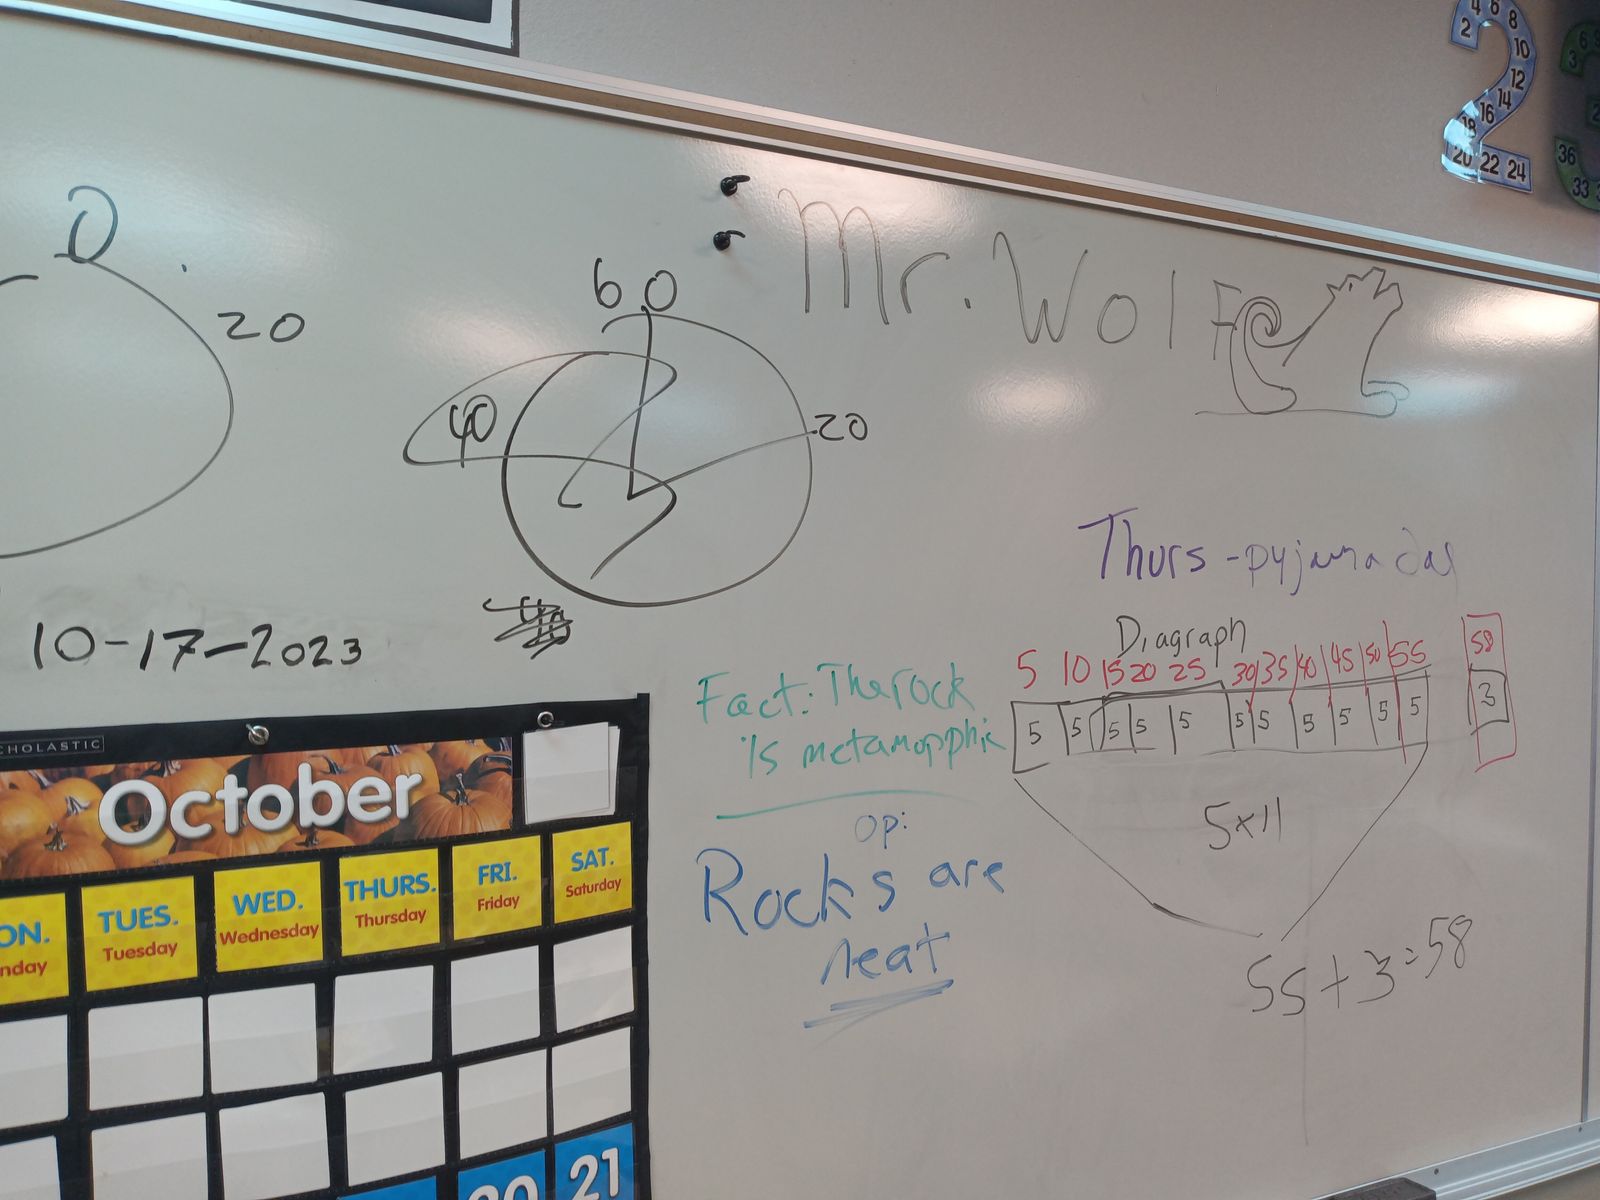 4 6 8
2 10
12
14
16
18
20 22 24
36
33
0
20
60
40
20
Mr. Wolf
10-17-2023
Thurs - pyjama day
Diagraph
5 10 15 20 25 30 35 40 45 50 55 58
5 5 5 5 5 5 5 5 5 5 5 3
5x11
55+3=58
Fact: The rock
is metamorphic
op:
Rocks are
neat
SCHOLASTIC
October
ON. TUES. WED. THURS. FRI. SAT.
nday Tuesday Wednesday Thursday Friday Saturday
20 21